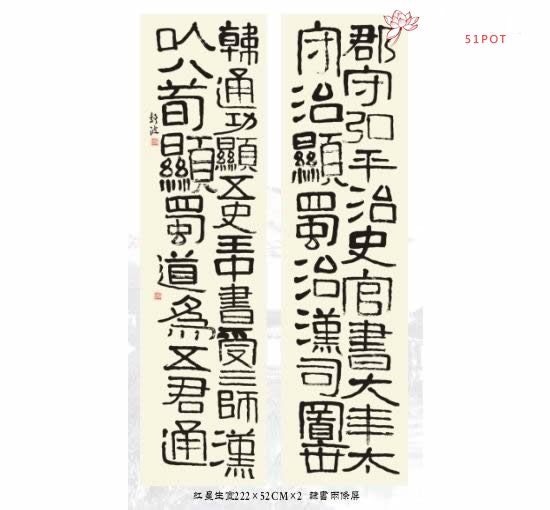 51POT
郡守弘平治史官書太年太
守治顯蜀治漢司圖
韓通功顯五史王中書受三師漢
以八首顯蜀道為五君通
红星生宣222×52CM×2 隸書兩條屏